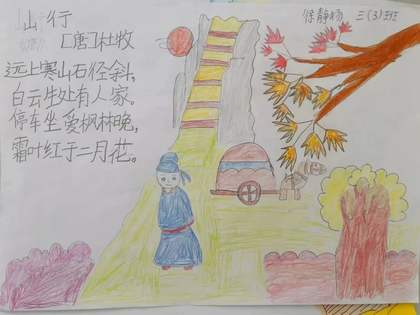 山行
[唐]杜牧
远上寒山石径斜,
白云生处有人家。
停车坐爱枫林晚,
霜叶红于二月花。
徐静杨 三(3)班